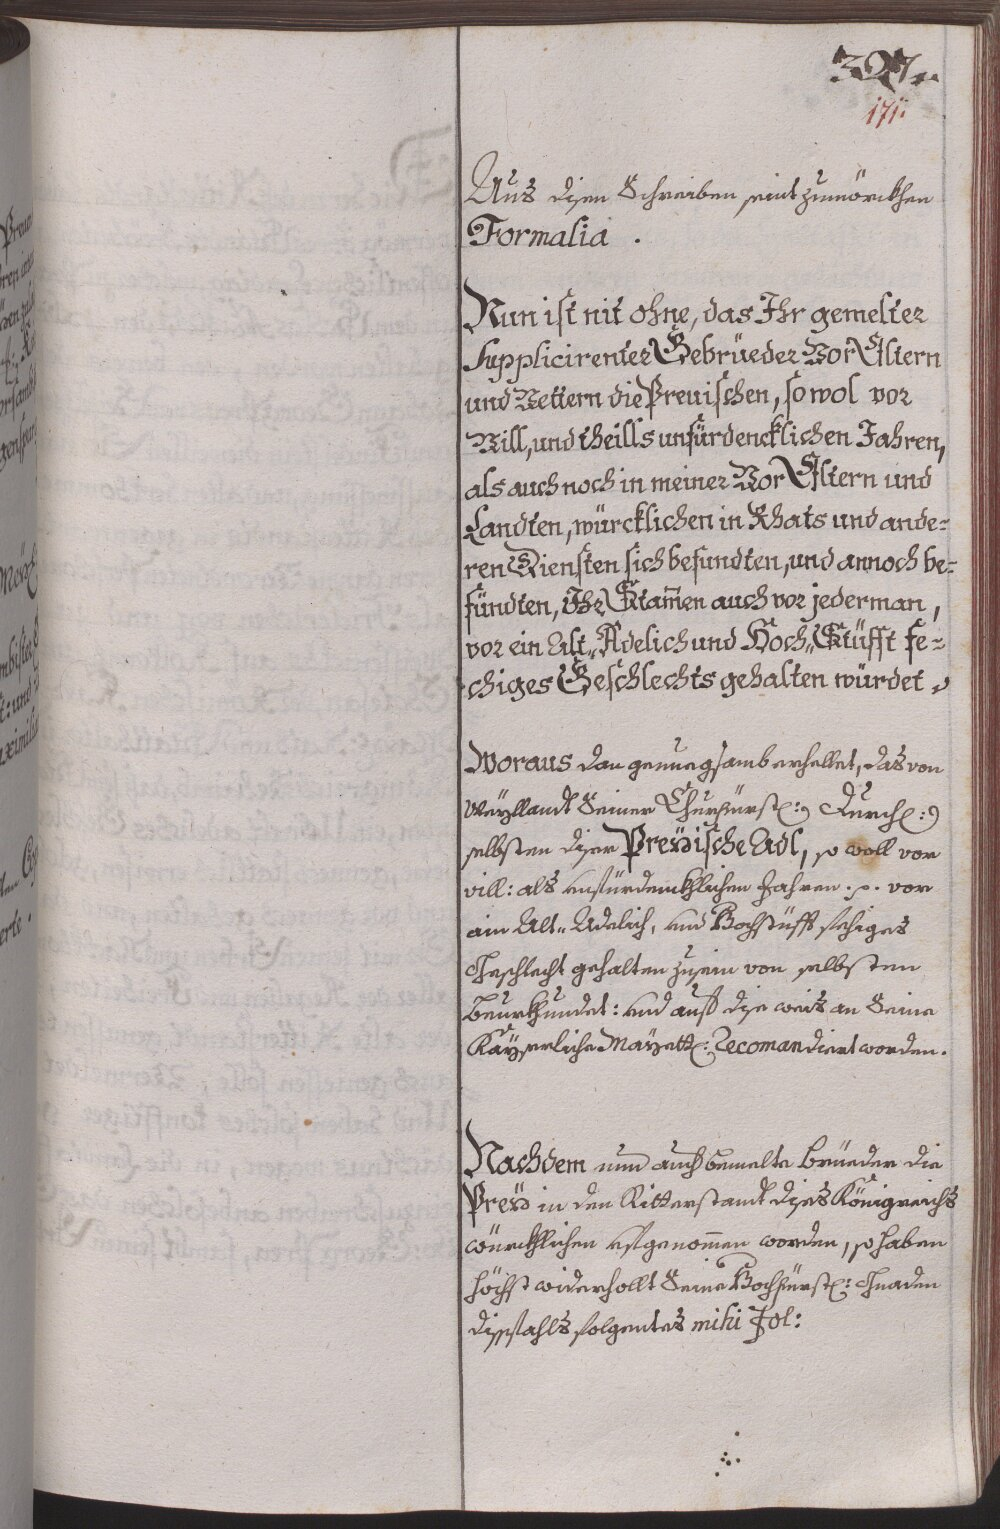 327.
171.
Aus disen Schreiben seint zumörckhen
Formalia .
Nun ist nit ohne, das Ihr gemelter
Supplicirenter Gebrüeder Vor Eltern
und Vettern die Preuischen, so wol vor
Vill, und theills unfürdencklichen Jahren,
als auch noch in meiner Vor Eltern und
Landten, würcklichen in Rhats und ande=
ren Diensten sich befundten, und annoch be=
fündten, Ihr Stam̄en auch vor jederman,
vor ein Alt„ Adelich und Hoch„ Stüfft fe=
chiges Geschlechts gehalten würdet.
Woraus dan genuegsamb erhellet, das von
Weyllandt Seiner Churfürstl: Durchl:
selbsten diser Preÿische Adl, so woll vor
vill: als unfürdenckhlichen Jahren .p. vor
ain Alt„ Adelich, und Hochstüfft fechiges
Geschlecht gehalten zusein von selbsten
Beurkhundet: und auff dise weis an Seine
Kayserliche Mayestt: Recomandiert worden.
Nachdem nun auch bemelte Brüeder die
Preÿ in den Ritterstandt dises Königreichs
würckhlichen aufgenom̄en worden, so haben
höchst widerhollt Seine Hochfürstl: Gnaden
dissfahls folgentes mihi Fol: